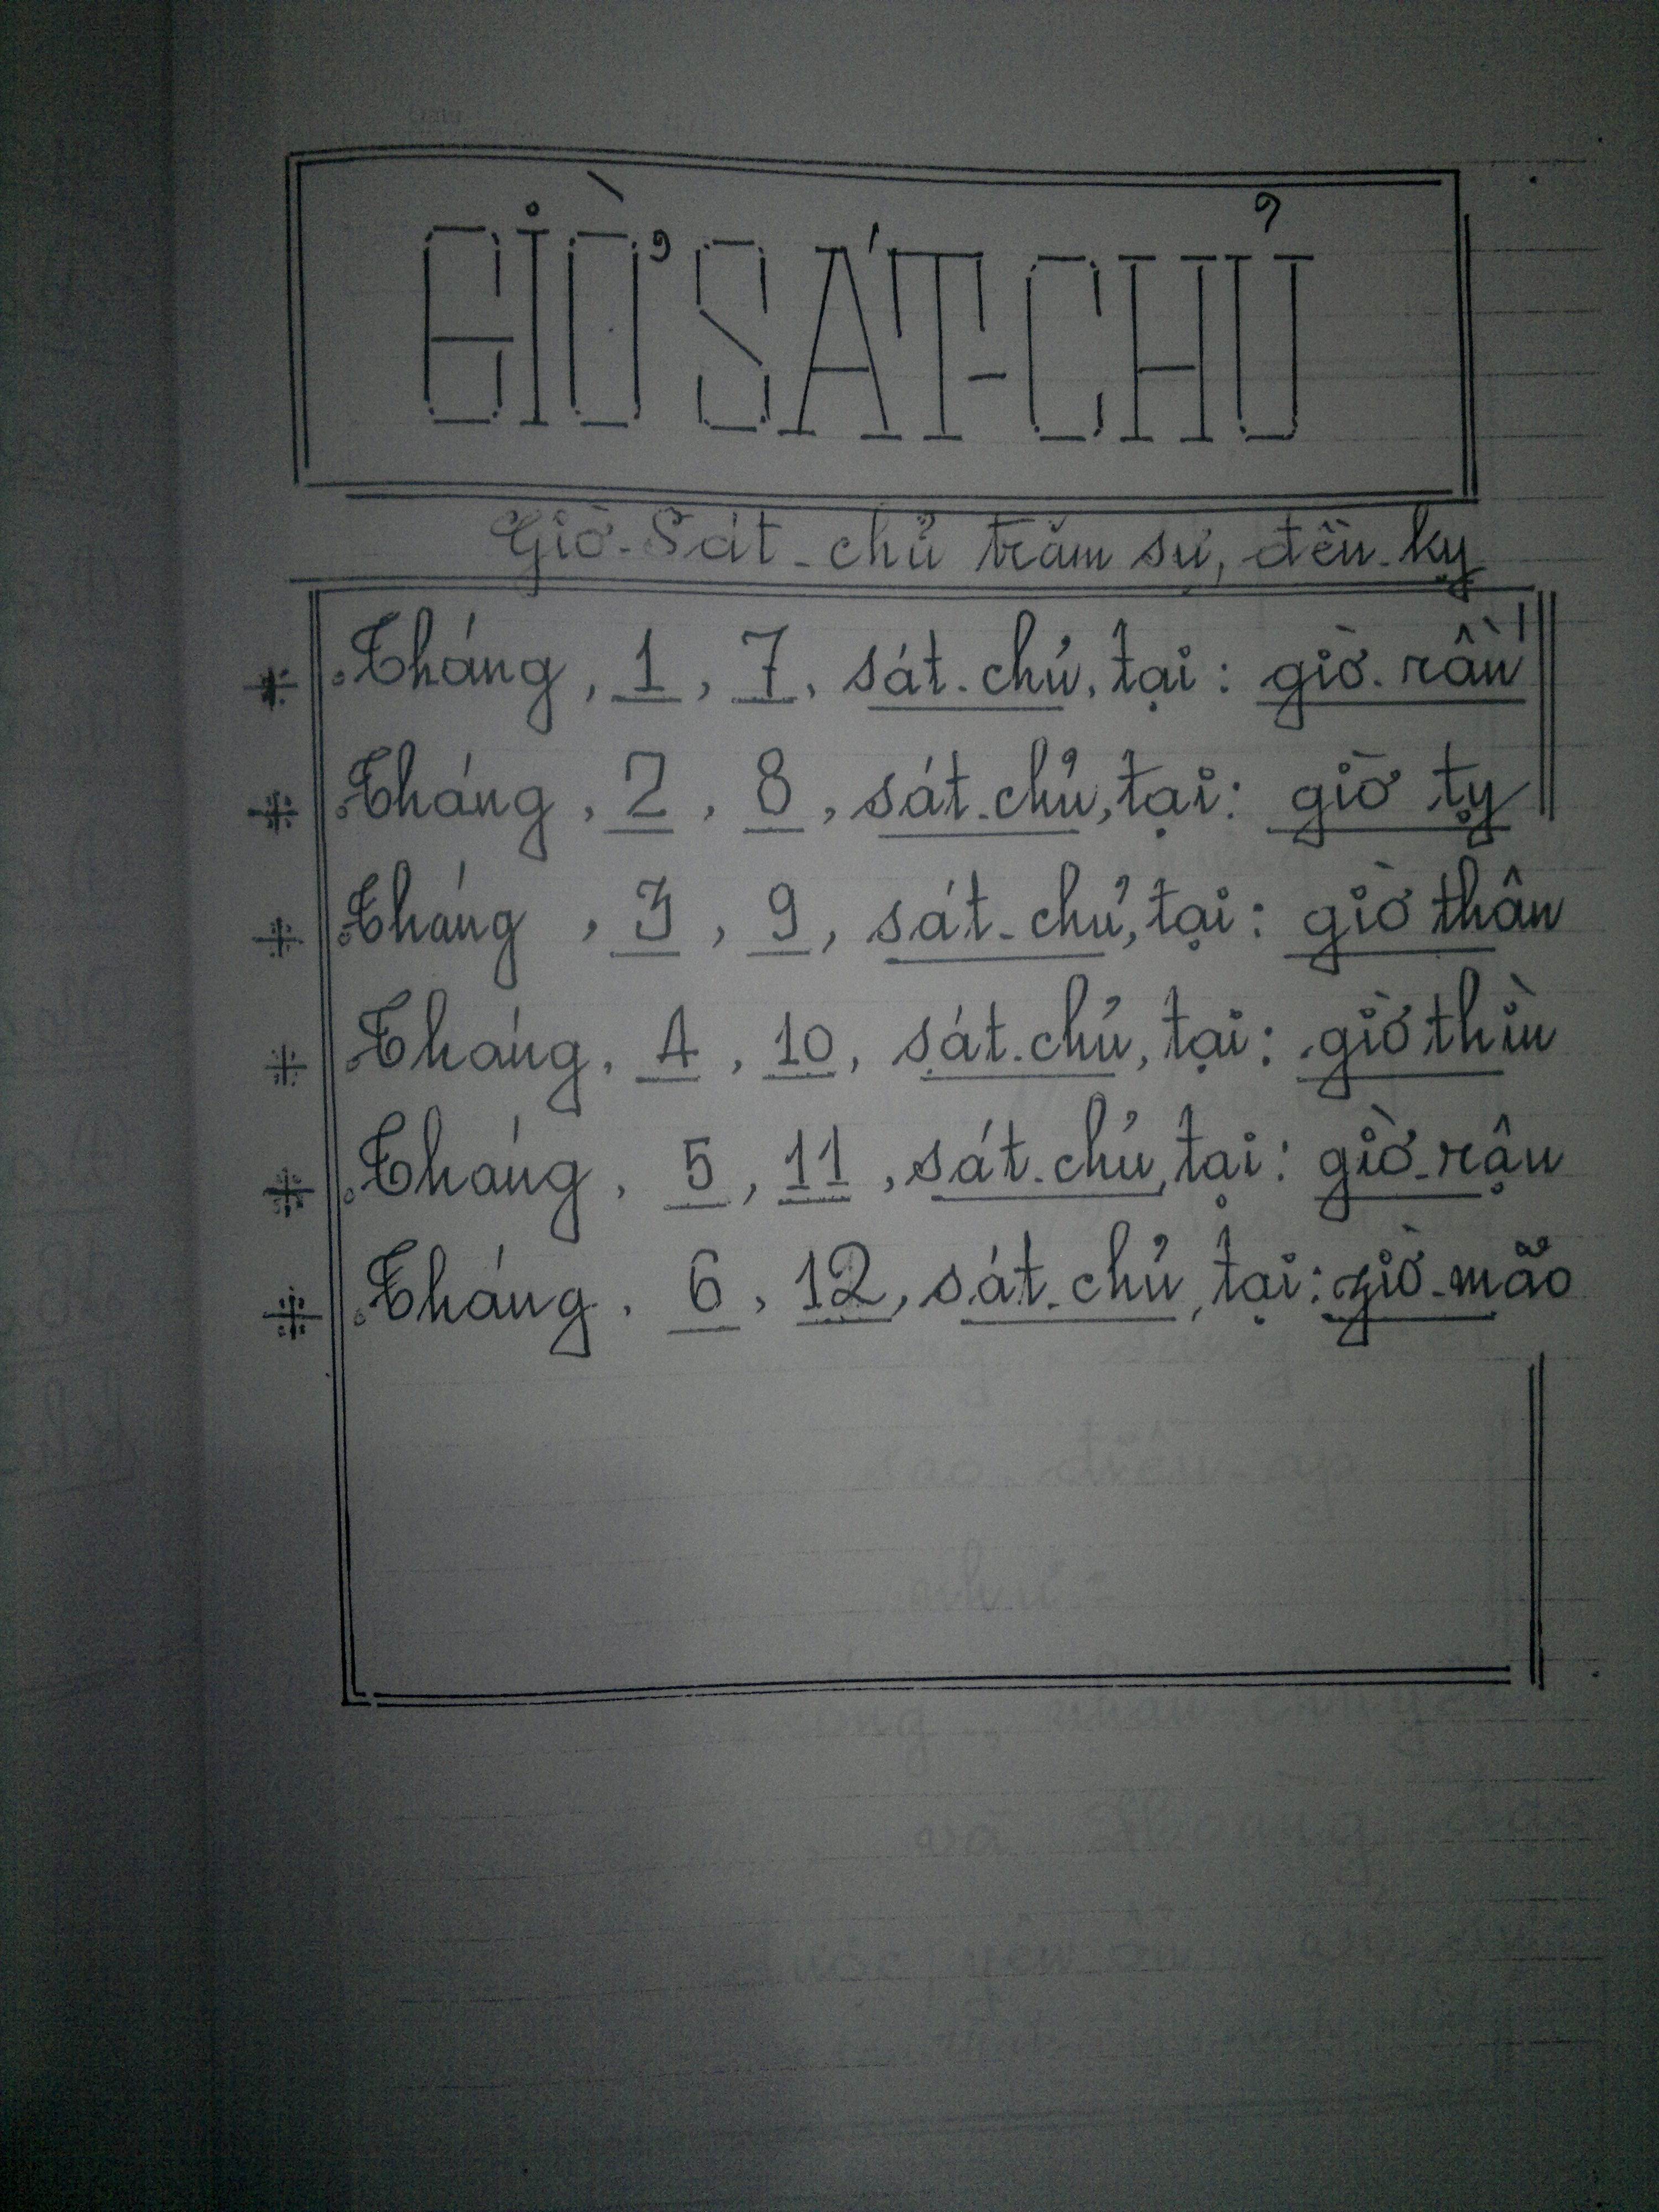 GIỜ SÁT-CHỦ
Giờ-Sát-chủ trăm sự, đều-kỵ
Tháng, 1, 7, sát-chủ, tại: giờ-rần
Tháng, 2, 8, sát-chủ, tại: giờ tỵ
Tháng, 3, 9, sát-chủ, tại: giờ thân
Tháng, 4, 10, sát-chủ, tại: giờ thìn
Tháng, 5, 11, sát-chủ, tại: giờ-rậu
Tháng, 6, 12, sát-chủ, tại: giờ-mão